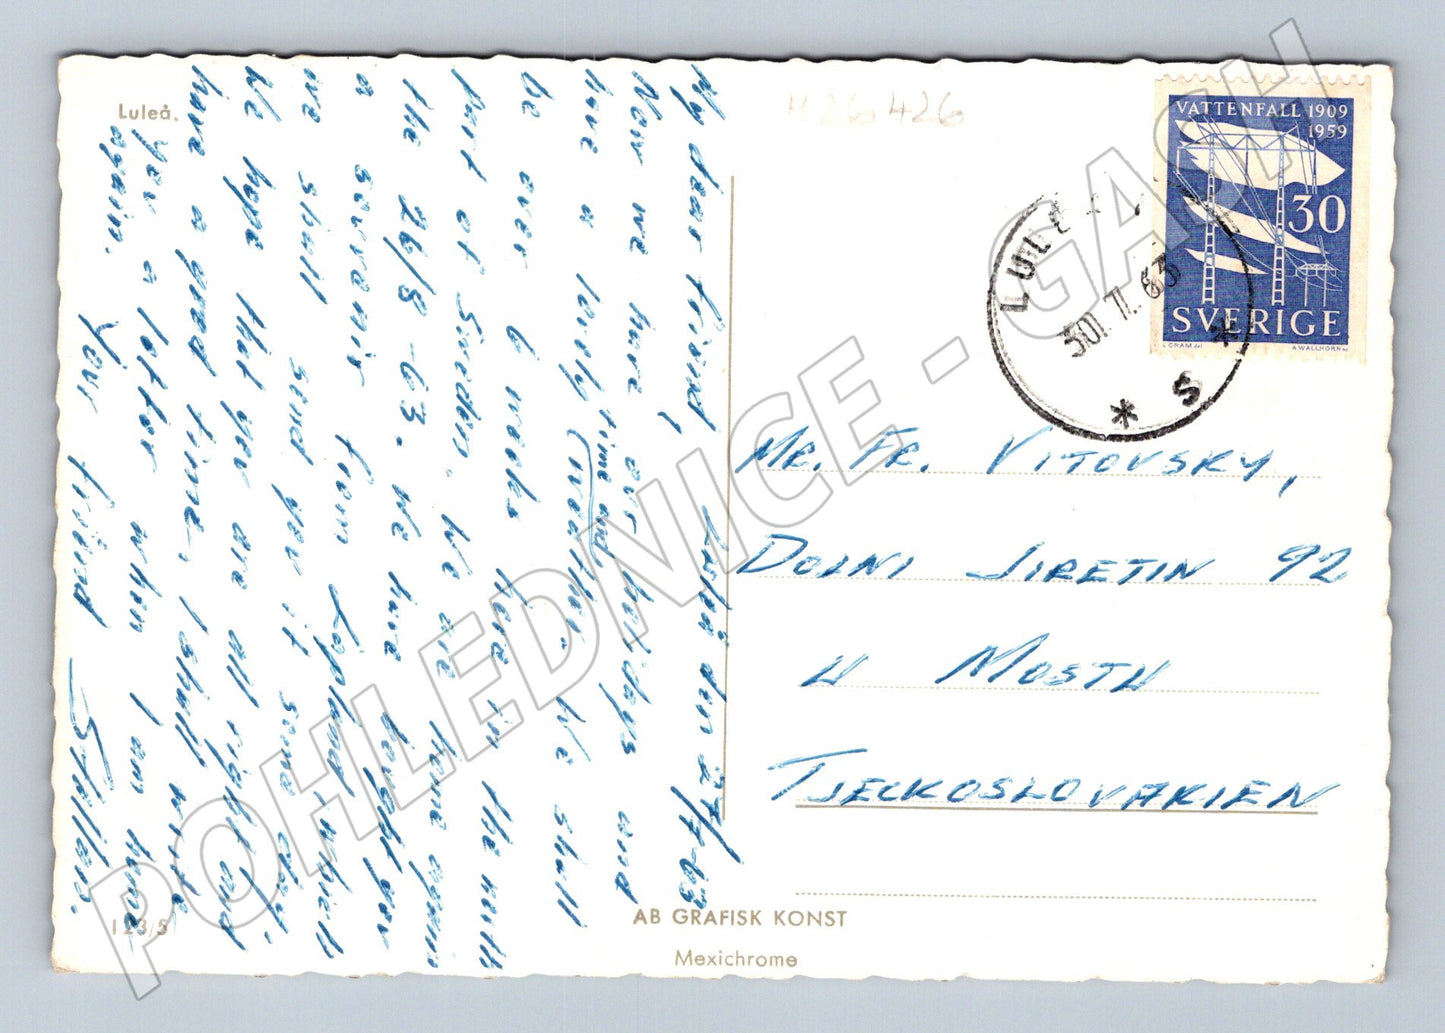 Luleå.
426426
Luleå den 27/7-63
My dear friend,
Now we have our holidays and
have a lovely time and (weather). We shall
be over 6 weeks here in the north
part of Sweden. We are home again
the 26/8-63. We have bought you
a souvenir from Lapland which
we shall send you it some day.
We hope that you are all right and
have a good time. I shall write
you a letter when I am home
again.
Your friend
123/5
AB GRAFISK KONST
Mexichrome
VATTENFALL 1909
1959
30
SVERIGE
L.CRAM del
A.WALLHORN sc
LULEÅ
30. 7. 63
* S *
MR. FR. VITOVSKY,
DOLNI JIRETIN 92
U MOSTU
TJECKOSLOVAKIEN
POHLEDNICE - GASH